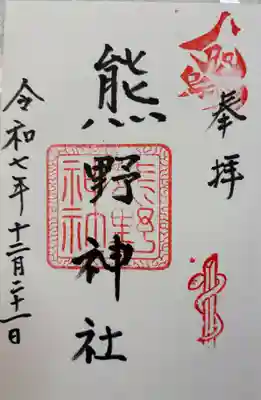 八咫烏
奉拝
熊野神社
令和七年十二月二十一日